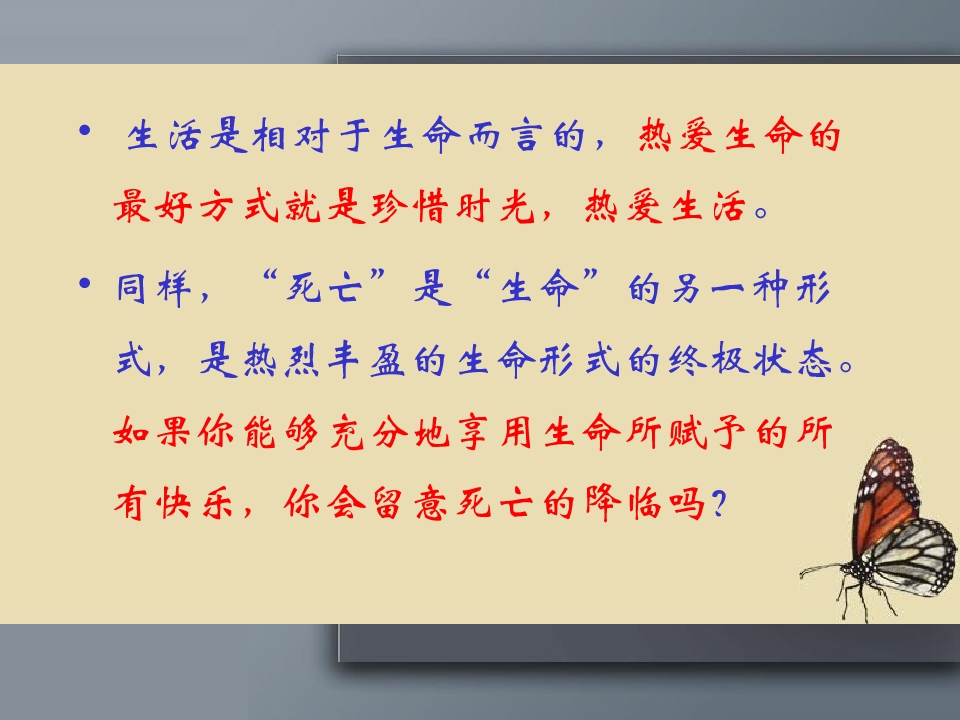 • 生活是相对于生命而言的，热爱生命的
最好方式就是珍惜时光，热爱生活。
• 同样，“死亡”是“生命”的另一种形
式，是热烈丰盈的生命形式的终极状态。
如果你能够充分地享用生命所赋予的所
有快乐，你会留意死亡的降临吗？